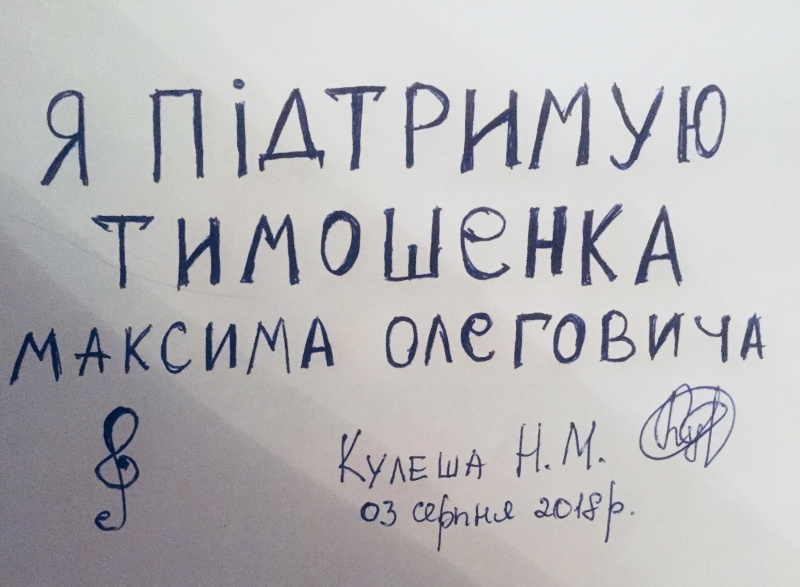 Я ПІДТРИМУЮ
ТИМОШЕНКА
МАКСИМА ОЛЕГОВИЧА
КУЛЕША Н.М.
03 серпня 2018р.